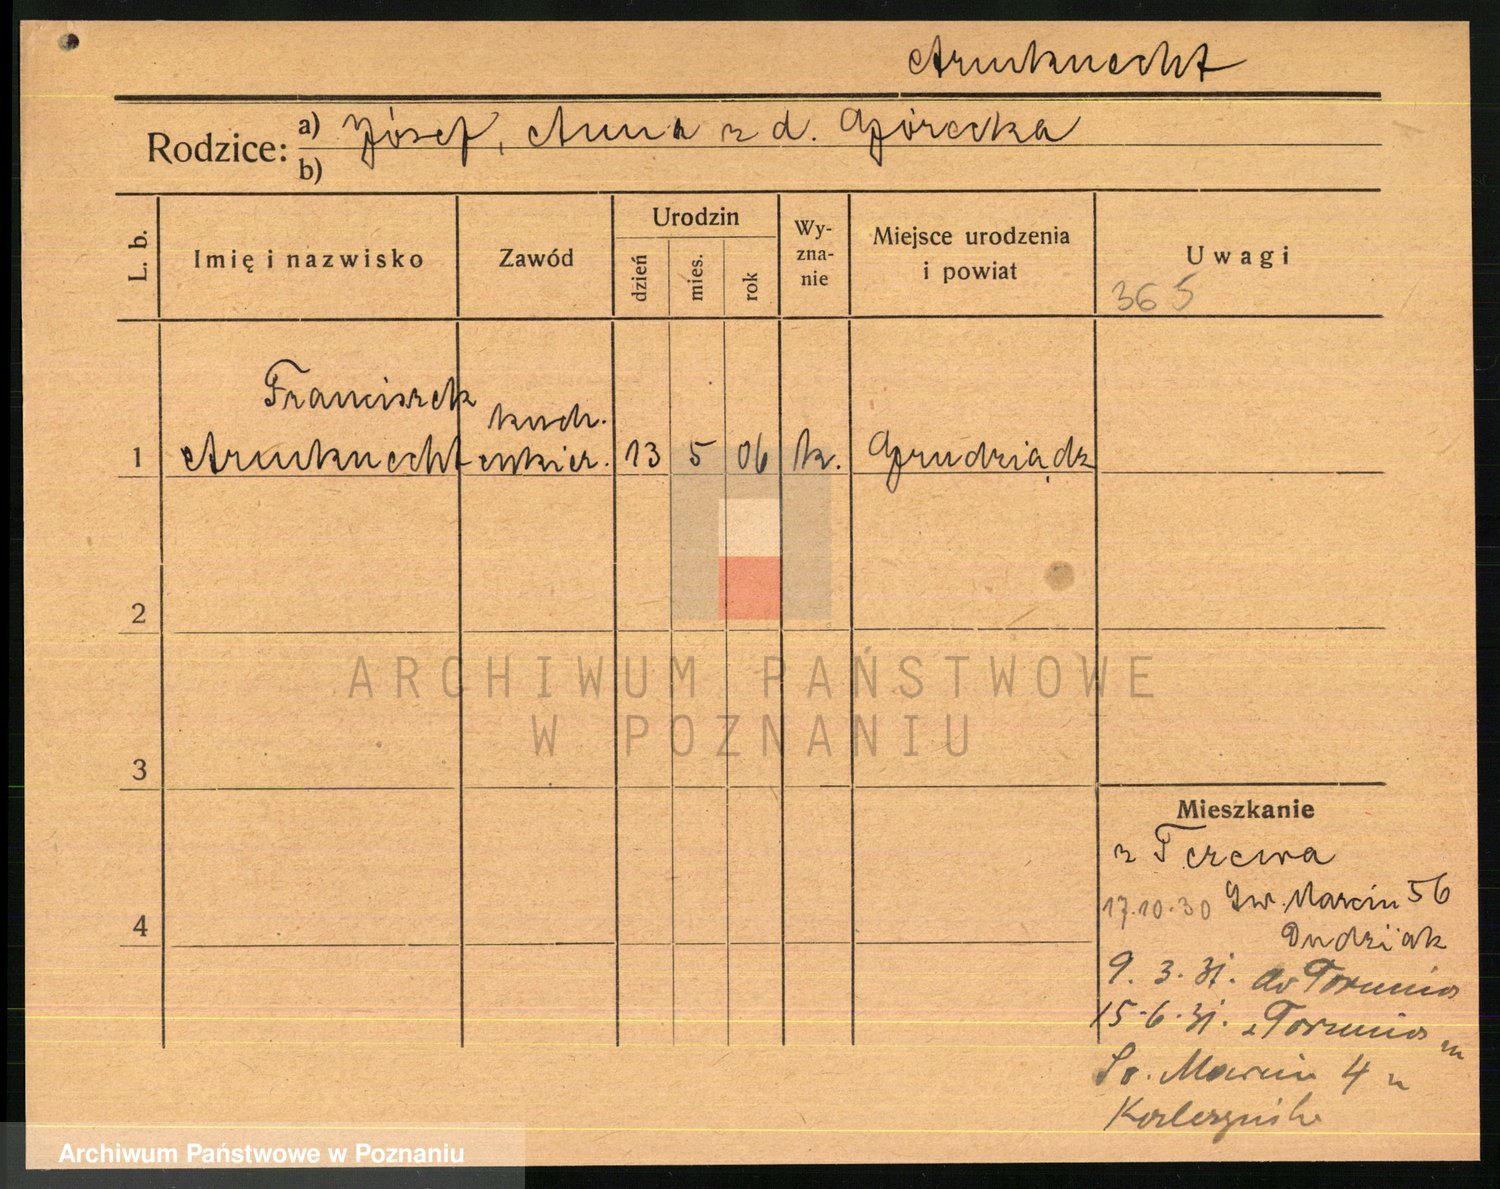 Armknecht
Rodzice: a) Józef, Anna z d. Górecka
b)
L. b.
Imię i nazwisko
Zawód
Urodzin
dzień
mies.
rok
Wy-
zna-
nie
Miejsce urodzenia
i powiat
Uwagi
365
Franciszek
kuch.
1 Armknecht cukier. 13 5 06 k. Grudziądz
2
ARCHIWUM PAŃSTWOWE
W POZNANIU
3
Mieszkanie
z Tczewa
4
17.10.30 Św. Marcin 56
Dudziak
9. 3. 31. do Torunia
15.6.31. z Torunia
Św. Marcin 4 u
Archiwum Państwowe w Poznaniu